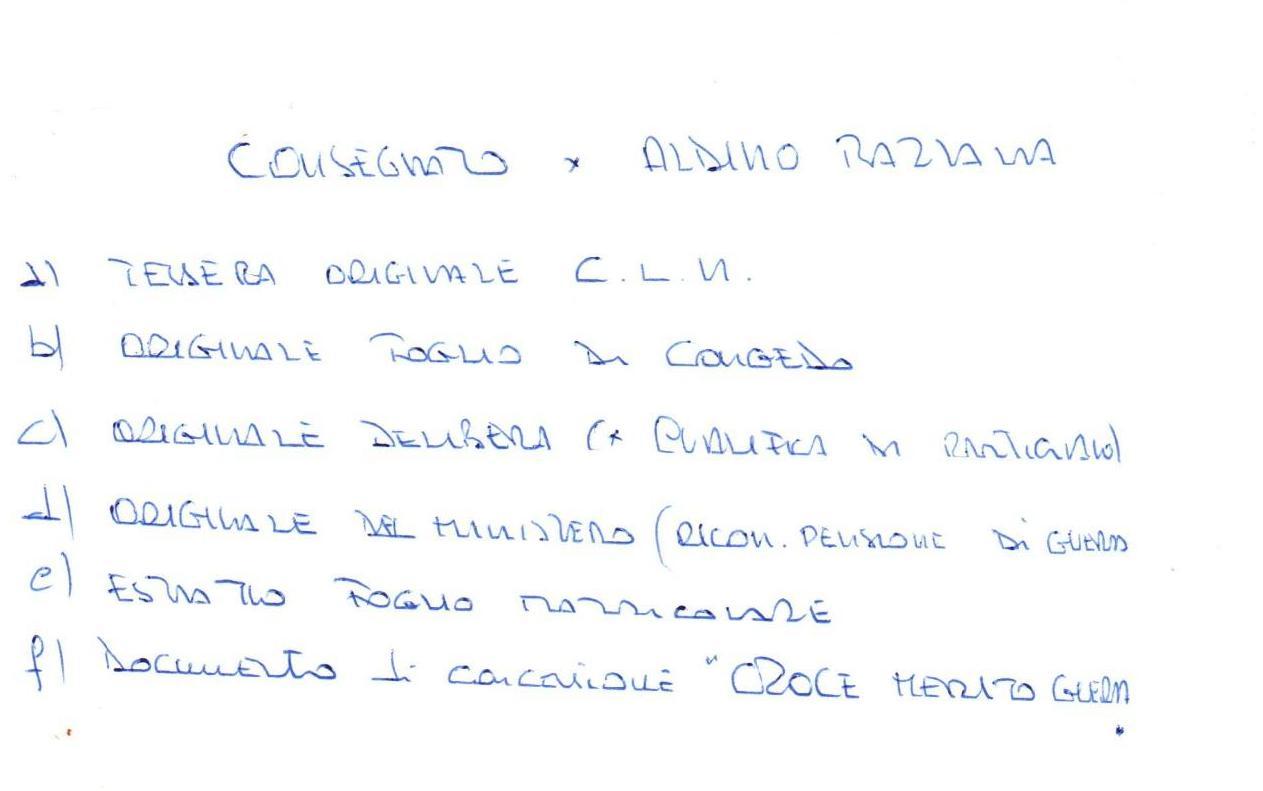 CONSEGNATO x ALDINO RAZIANA
a) TESSERA ORIGINALE C.L.N.
b) ORIGINALE FOGLIO DI CONGEDO
c) ORIGINALE DELIBERA (x QUALIFICA DI PARTIGIANO)
d) ORIGINALE DEL MINISTERO (RICON. PENSIONE Di GUERRA
e) ESTRATTO FOGLIO MATRICOLARE
f) DOCUMENTO di concessione "CROCE MERITO GUERRA